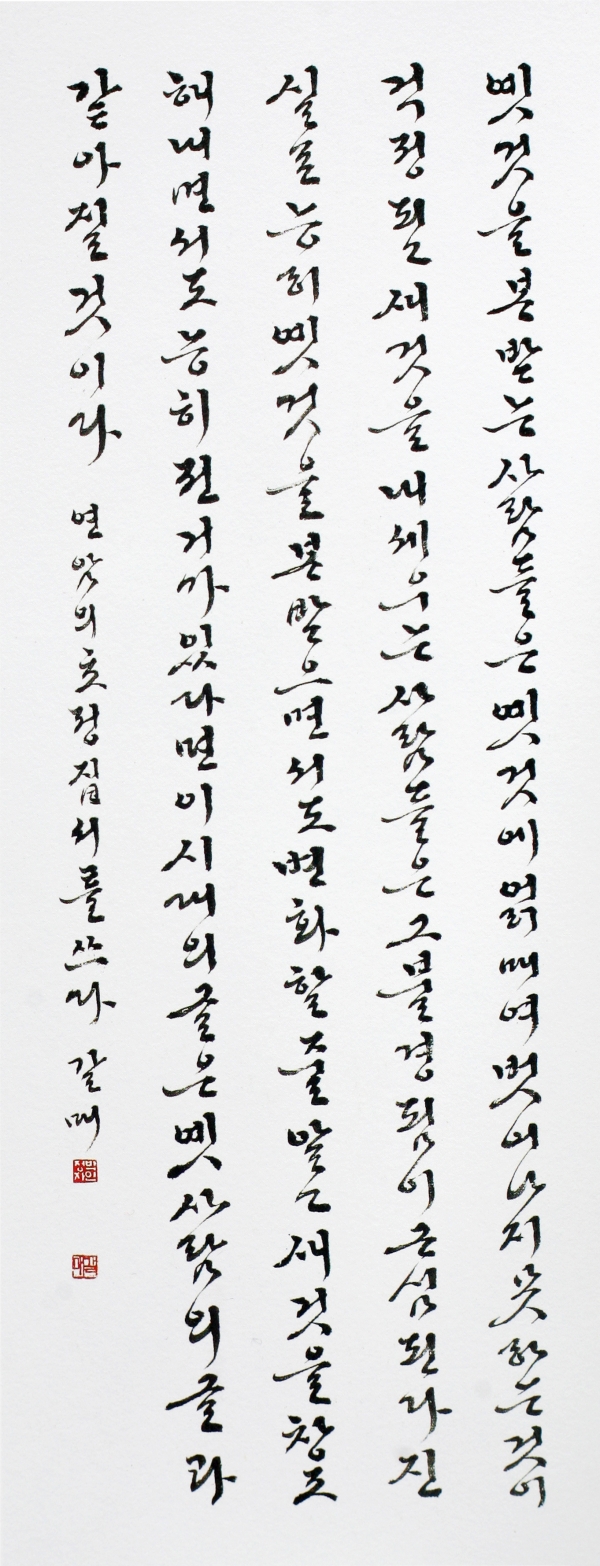 옛것을본받는사람들은옛것에얽매여벗어나지못하는것이
걱정되고새것을내세우는사람들은그불경됨이근심된다진
실로능히옛것을본받으면서도변화할줄알고새것을창조
해내면서도능히전거가있다면이시대의글은옛사람의글과
같아질것이다 연암의초정집서를쓰다 갈매